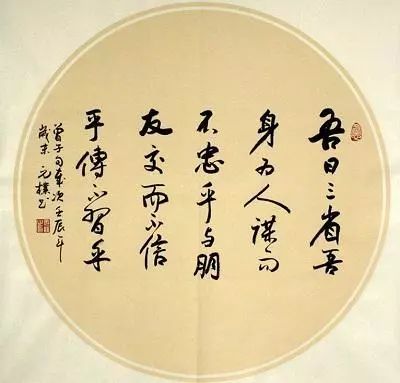 吾日三省吾
身为人谋而
不忠乎与朋
友交而不信
乎傳不習乎
曾子句歲次壬辰年
歲末 元樸书